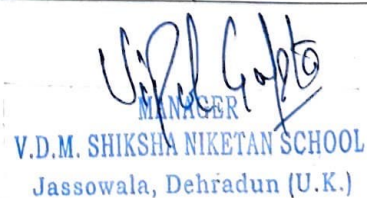 Vipul Gupta
MANAGER
V.D.M. SHIKSHA NIKETAN SCHOOL
Jassowala, Dehradun (U.K.)